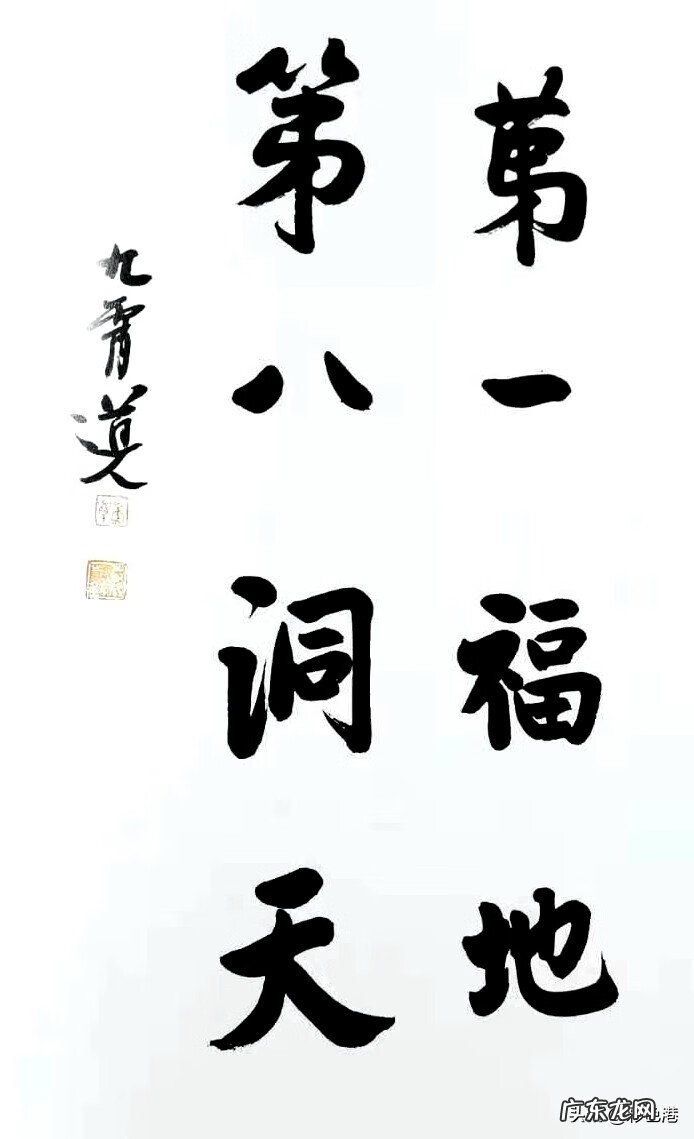 第一福地
第八洞天
九霄道人
广东龙网